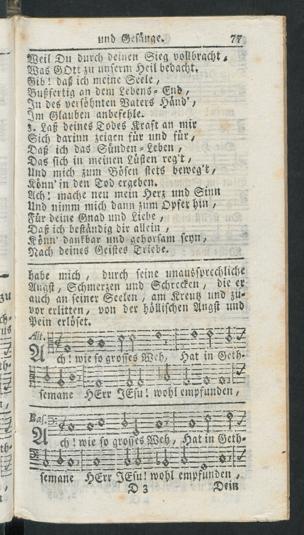 und Gesänge. 77
Weil Du durch deinen Sieg vollbracht,
Was GOtt zu unserm Heil bedacht.
Gib! daß ich meine Seele,
Bußfertig an dem Lebens-End,
In des versöhnten Vaters Händ',
Im Glauben anbefehle.
3. Laß deines Todes Kraft an mir
Sich darinn zeigen für und für,
Daß ich das Sünden-Leben,
Das sich in meinen Lüsten reg't,
Und mich zum Bösen stets beweg't,
Könn' in den Tod ergeben.
Ach! mache neu mein Herz und Sinn
Und nimm mich dann zum Opfer hin,
Für deine Gnad und Liebe,
Daß ich beständig dir allein,
Könn' dankbar und gehorsam seyn,
Nach deines Geistes Triebe.
habe mich, durch seine unaussprechliche
Angst, Schmerzen und Schrecken, die er
auch an seiner Seelen, am Kreutz und zu-
vor erlitten, von der höllischen Angst und
Pein erlöset.
Alt.
Ach! wie so grosses Weh, Hat in Geth-
semane HErr JEsu! wohl empfunden,
Bas.
Ach! wie so grosses Weh, Hat in Geth-
semane HErr JEsu! wohl empfunden,
D 3 Dein